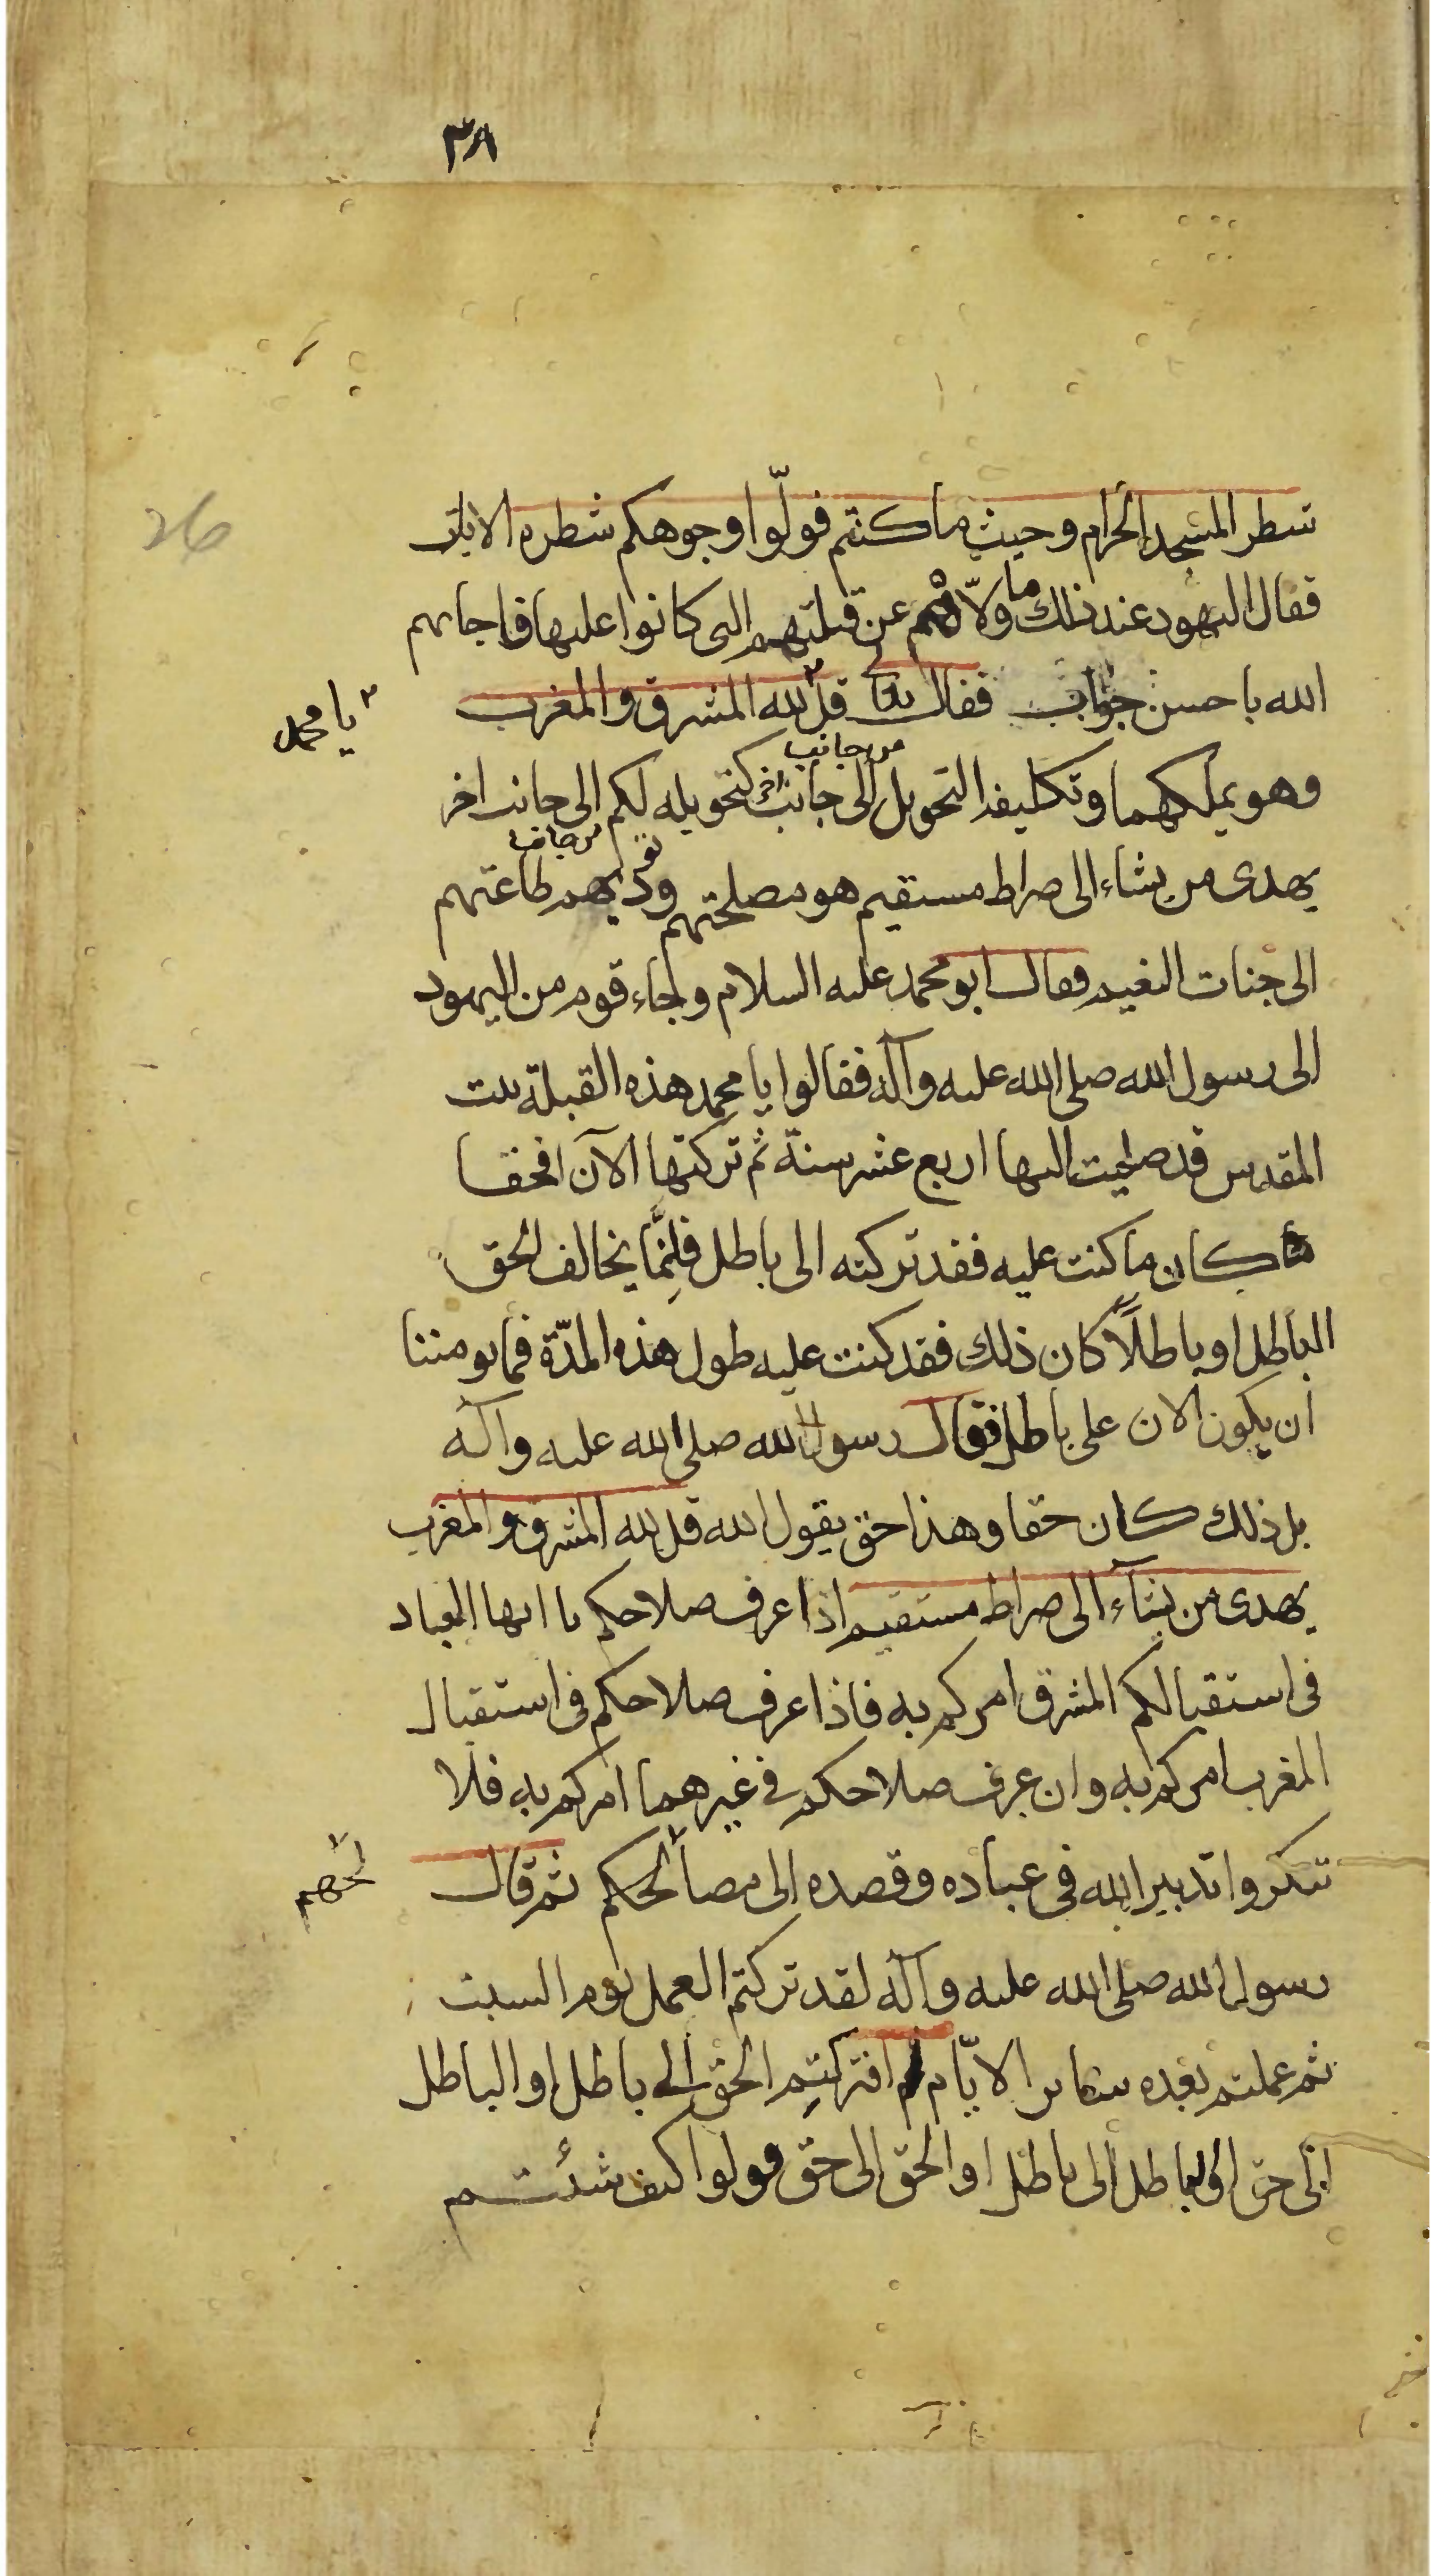 ٣٨
شطر المسجد الحرام وحيث ما كنتم فولّوا وجوهكم شطره الايات
26
فقال اليهود عند ذلك ما ولّاهم عن قبلتهم التى كانوا عليها فاجابهم
الله باحسن جواب فقال قل لله المشرق والمغرب
يا محمد
وهو يملكهما وتكليفه التحويل من جانب الى جانب آخر كتحويله لكم من جانب الى جانب اخر
يهدى من يشاء الى صراط مستقيم هو مصلحتهم وتوديهم طاعتهم
الى جنات النعيم فقال ابو محمد عليه السلام وجاء قوم من اليهود
الى رسول الله صلى الله عليه وآله فقالوا يا محمد هذه القبلة بيت
المقدس قد صليت اليها اربع عشر سنة ثم تركتها الآن افحقا
كان ما كنت عليه فقد تركته الى باطل فانّما يخالف الحق
الباطل او باطلاً كان ذلك فقد كنت عليه طول هذه المدّة فما يومننا
ان يكون الان على باطل فقال رسول الله صلى الله عليه وآله
بل ذلك كان حقا وهذا حق يقول الله قل لله المشرق والمغرب
يهدى من يشآء الى صراط مستقيم اذا عرف صلاحكم يا ايها العباد
فى استقبالكم المشرق امركم به فاذا عرف صلاحكم فى استقبال
المغرب امركم به وان عرف صلاحكم فى غيرهما امركم به فلا
تنكروا تدبير الله فى عباده وقصده الى مصالحكم ثم قال
لحهم
رسول الله صلى الله عليه وآله لقد تركتم العمل يوم السبت
ثم عملتم بعده سائر الايّام افتركتم الحق الى باطل او الباطل
الى حق او الباطل الى باطل او الحق الى حق قولوا كيف شئتم